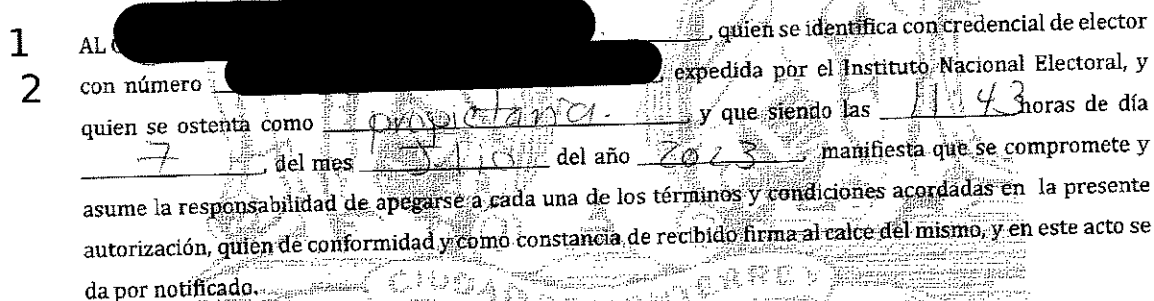 1 AL , quien se identifica con credencial de elector
2 con número , expedida por el Instituto Nacional Electoral, y
quien se ostenta como propietaria. y que siendo las 11:43 horas de día
7 , del mes Julio del año 2023 , manifiesta que se compromete y
asume la responsabilidad de apegarse a cada una de los términos y condiciones acordadas en la presente
autorización, quien de conformidad y como constancia de recibido firma al calce del mismo, y en este acto se
da por notificado.